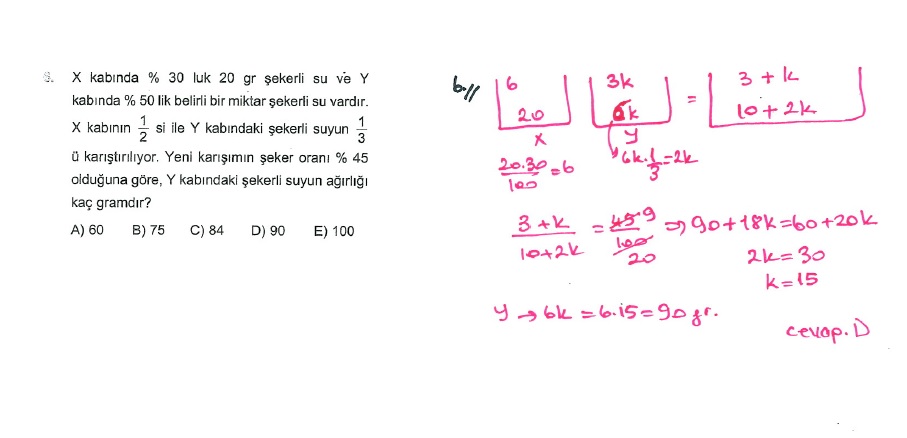 9. X kabında % 30 luk 20 gr şekerli su ve Y
kabında % 50 lik belirli bir miktar şekerli su vardır.
X kabının 1/2 si ile Y kabındaki şekerli suyun 1/3
ü karıştırılıyor. Yeni karışımın şeker oranı % 45
olduğuna göre, Y kabındaki şekerli suyun ağırlığı
kaç gramdır?
A) 60 B) 75 C) 84 D) 90 E) 100
6// 6 3k = 3 + k
20 6k 10 + 2k
X y
20.30/100 = 6 6k.1/3 = 2k
3+k/10+2k = 45 9/100 20 ⇒ 90+18k=60+20k
2k=30
k=15
y → 6k = 6.15 = 90 gr.
cevap. D